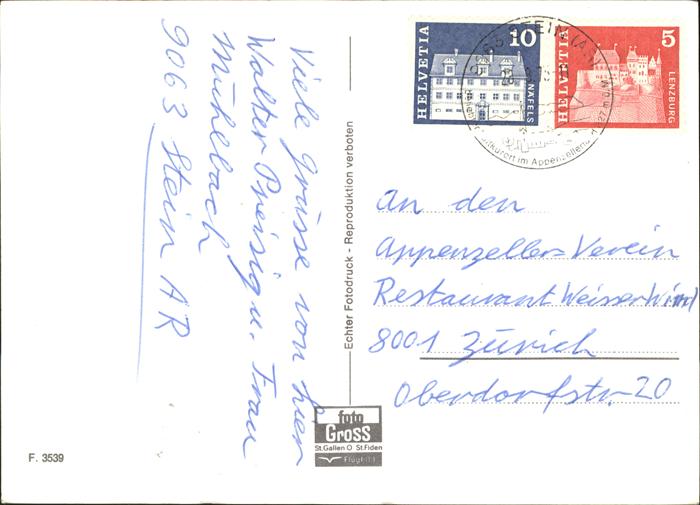 Viele Grüsse von hier
Walter Preisig u. Frau
Mühlbach
9063 Stein AR
Echter Fotodruck - Reproduktion verboten
HELVETIA
10
NÄFELS
HELVETIA
5
LENZBURG
9063 STEIN (
Kurort im Appenzellerl
An den
Appenzeller-Verein
Restaurant Weisser Wind
8001 Zürich
Oberdorfstr. 20
foto
Gross
St.Gallen O St.Fiden
Flugbild
F. 3539